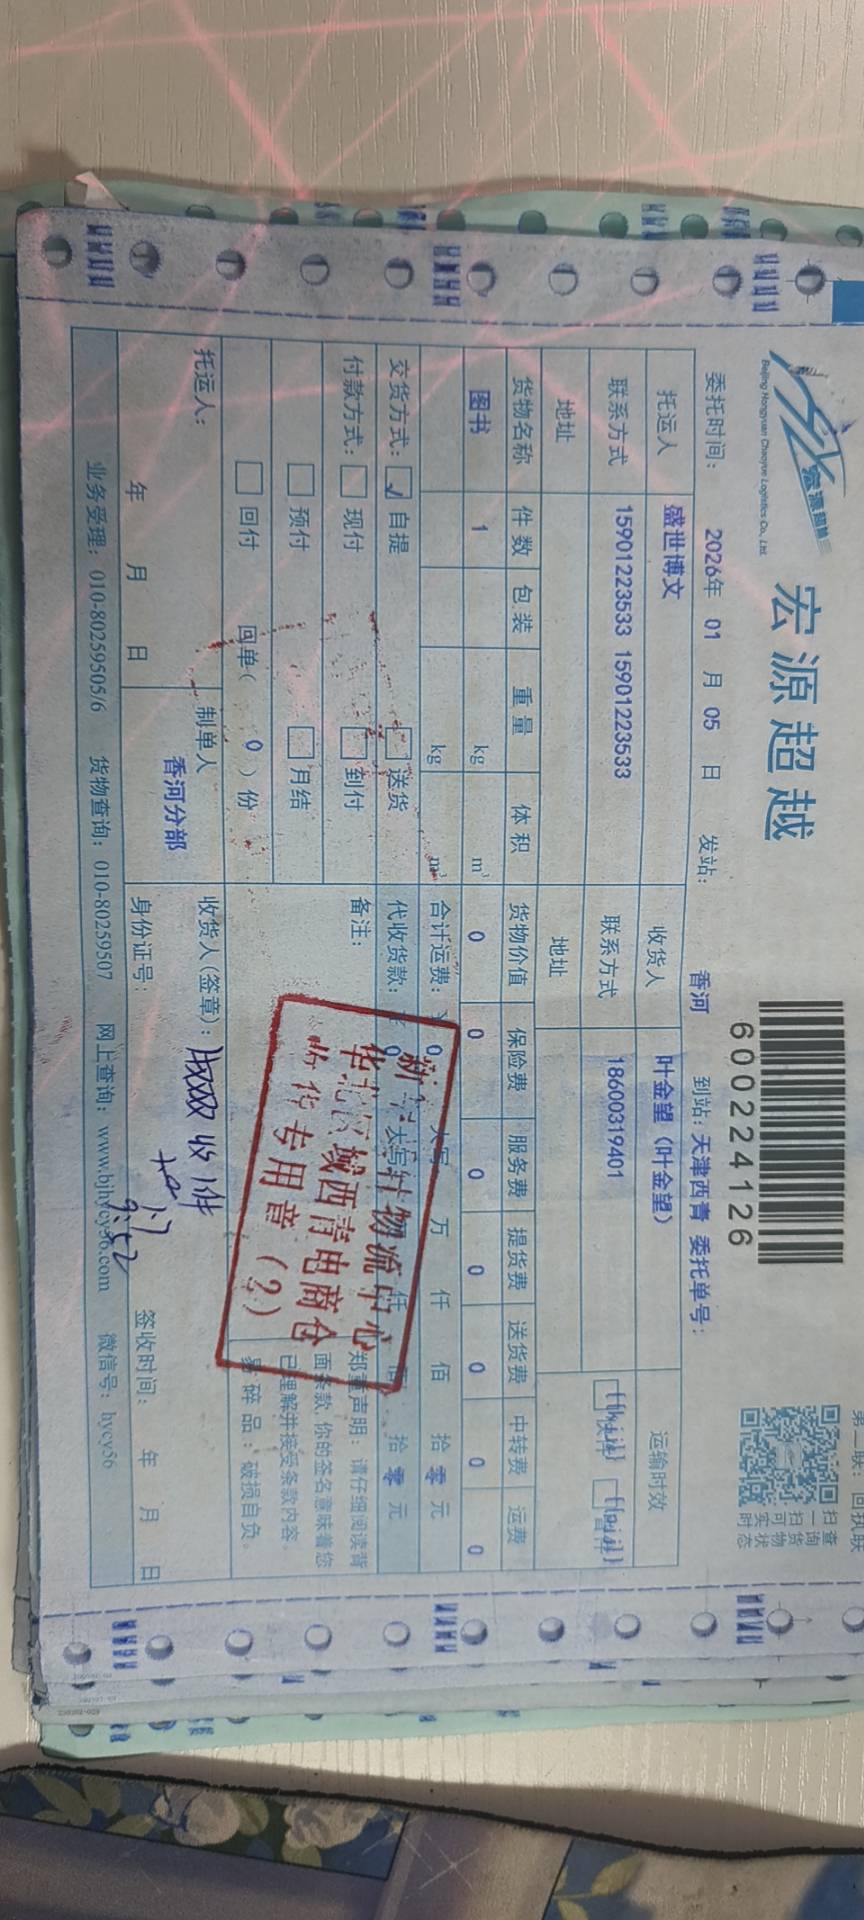 宏源超越
Beijing Hongyuan Chaoyue Logistics Co., Ltd.
600224126
扫一扫
查询货物
可实时状态
委托时间: 2026年 01 月 05 日 发站: 香河 到站: 天津西青 委托单号:
托运人 盛世博文 收货人 叶金望 (叶金望) 运输时效
联系方式 15901223533 15901223533 联系方式 18600319401
地址 地址
货物名称 件数 包装 重量 体积 货物价值 保险费 服务费 提货费 送货费 中转费 运费
图书 1 kg m³ 0 0 0 0 0 0 0
kg m³ 合计运费: 0 大写 万 仟 佰 拾 零 元
交货方式: ☑ 自提 □ 送货 代收货款: 0 大写 仟 佰 拾 零 元
付款方式: □ 现付 □ 到付 备注:
□ 预付 □ 月结
□ 回付 回单( 0 )份
郑重声明: 请仔细阅读背
面条款, 你的签名意味着您
已理解并接受条款内容。
易碎品: 破损自负。
物流中心
华北区域西青电商仓
收货专用章 (2)
托运人: 制单人 收货人(签章): 收件
香河分部
年 月 日 身份证号: 签收时间: 年 月 日
1.7
9:52
业务受理: 010-80259505/6 货物查询: 010-80259507 网上查询: www.bjhycy56.com 微信号: hycy56